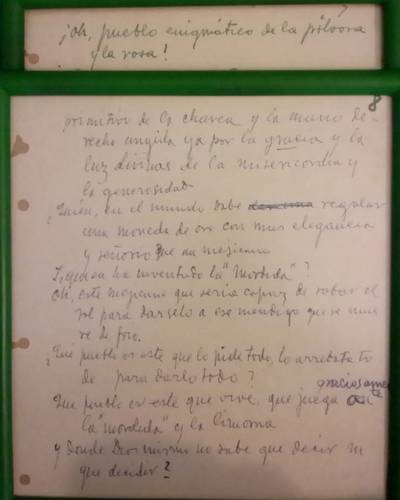 ¡Oh, pueblo enigmático de la pólvora
y la rosa!
8
primitivo de la charca y la mano de-
recha ungida ya por la gracia y la
luz divinas de la misericordia y
la generosidad
¿Quién, en el mundo sabe regalar
una moneda de oro con mas elegancia
y señorio que un mejicano
Y, quien ha inventado la "mordida"?
Oh, este mejicano que seria capaz de robar el
sol para darselo a ese mendigo que se mue
re de frio.
¿Qué pueblo es este que lo pide todo, lo arrebata to
do para darlo todo?
Que pueblo es este que vive, que juega graciosamente
la "mordida" y la limosna
y donde Dios mismo no sabe que decir ni
que decidir?